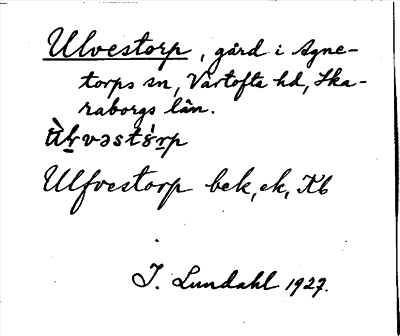 Ulvestorp, gård i Agne-
torps sn, Vartofta hd, Ska-
raborgs län.
Ulfvestorp bek, ek, Kb
I. Lundahl 1927.